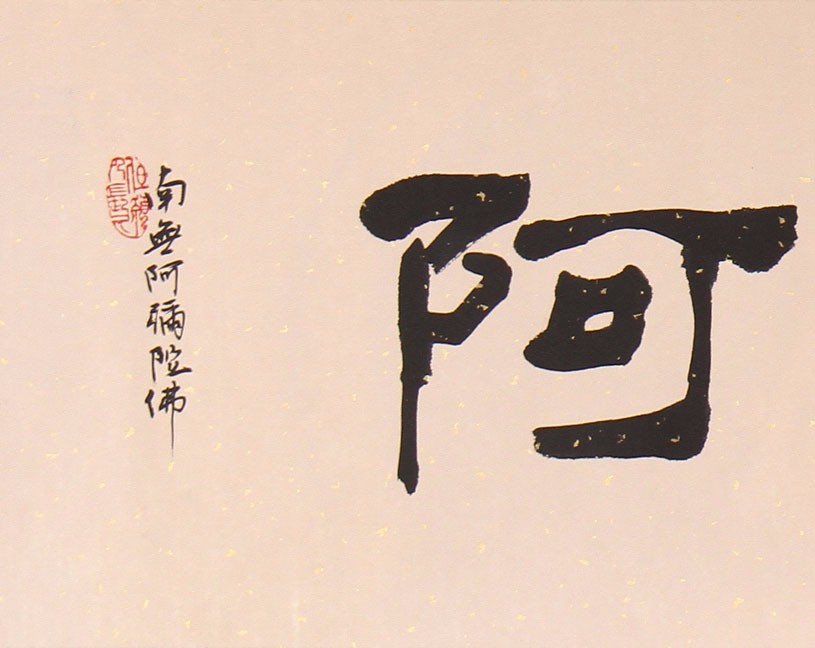 阿
南無阿彌陀佛